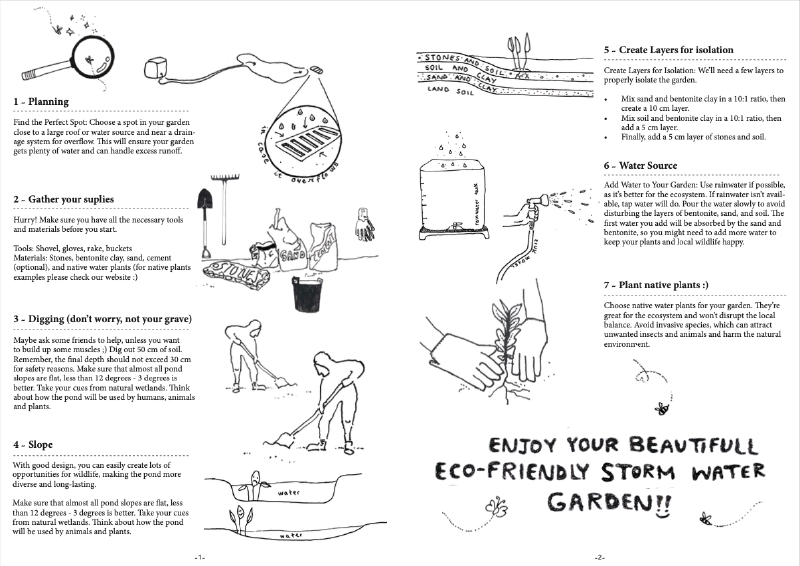 1 - Planning
Find the Perfect Spot: Choose a spot in your garden
close to a large roof or water source and near a drain-
age system for overflow. This will ensure your garden
gets plenty of water and can handle excess runoff.
in case it overflows
2 - Gather your suplies
Hurry! Make sure you have all the necessary tools
and materials before you start.
Tools: Shovel, gloves, rake, buckets
Materials: Stones, bentonite clay, sand, cement
(optional), and native water plants (for native plants
examples please check our website :)
SAND
STONES
3 - Digging (don't worry, not your grave)
Maybe ask some friends to help, unless you want
to build up some muscles ;) Dig out 50 cm of soil.
Remember, the final depth should not exceed 30 cm
for safety reasons. Make sure that almost all pond
slopes are flat, less than 12 degrees - 3 degrees is
better. Take your cues from natural wetlands. Think
about how the pond will be used by humans, animals
and plants.
4 - Slope
With good design, you can easily create lots of
opportunities for wildlife, making the pond more
diverse and long-lasting.
Make sure that almost all pond slopes are flat, less
than 12 degrees - 3 degrees is better. Take your cues
from natural wetlands. Think about how the pond
will be used by animals and plants.
water
water
-1-
STONES AND SOIL
SOIL AND CLAY
SAND AND CLAY
LAND SOIL
5 - Create Layers for isolation
Create Layers for Isolation: We'll need a few layers to
properly isolate the garden.
• Mix sand and bentonite clay in a 10:1 ratio, then
create a 10 cm layer.
• Mix soil and bentonite clay in a 10:1 ratio, then
add a 5 cm layer.
• Finally, add a 5 cm layer of stones and soil.
6 - Water Source
Add Water to Your Garden: Use rainwater if possible,
as it's better for the ecosystem. If rainwater isn't avail-
able, tap water will do. Pour the water slowly to avoid
disturbing the layers of bentonite, sand, and soil. The
first water you add will be absorbed by the sand and
bentonite, so you might need to add more water to
keep your plants and local wildlife happy.
7 - Plant native plants :)
Choose native water plants for your garden. They're
great for the ecosystem and won't disrupt the local
balance. Avoid invasive species, which can attract
unwanted insects and animals and harm the natural
environment.
ENJOY YOUR BEAUTIFULL
ECO-FRIENDLY STORM WATER
GARDEN!!
-2-